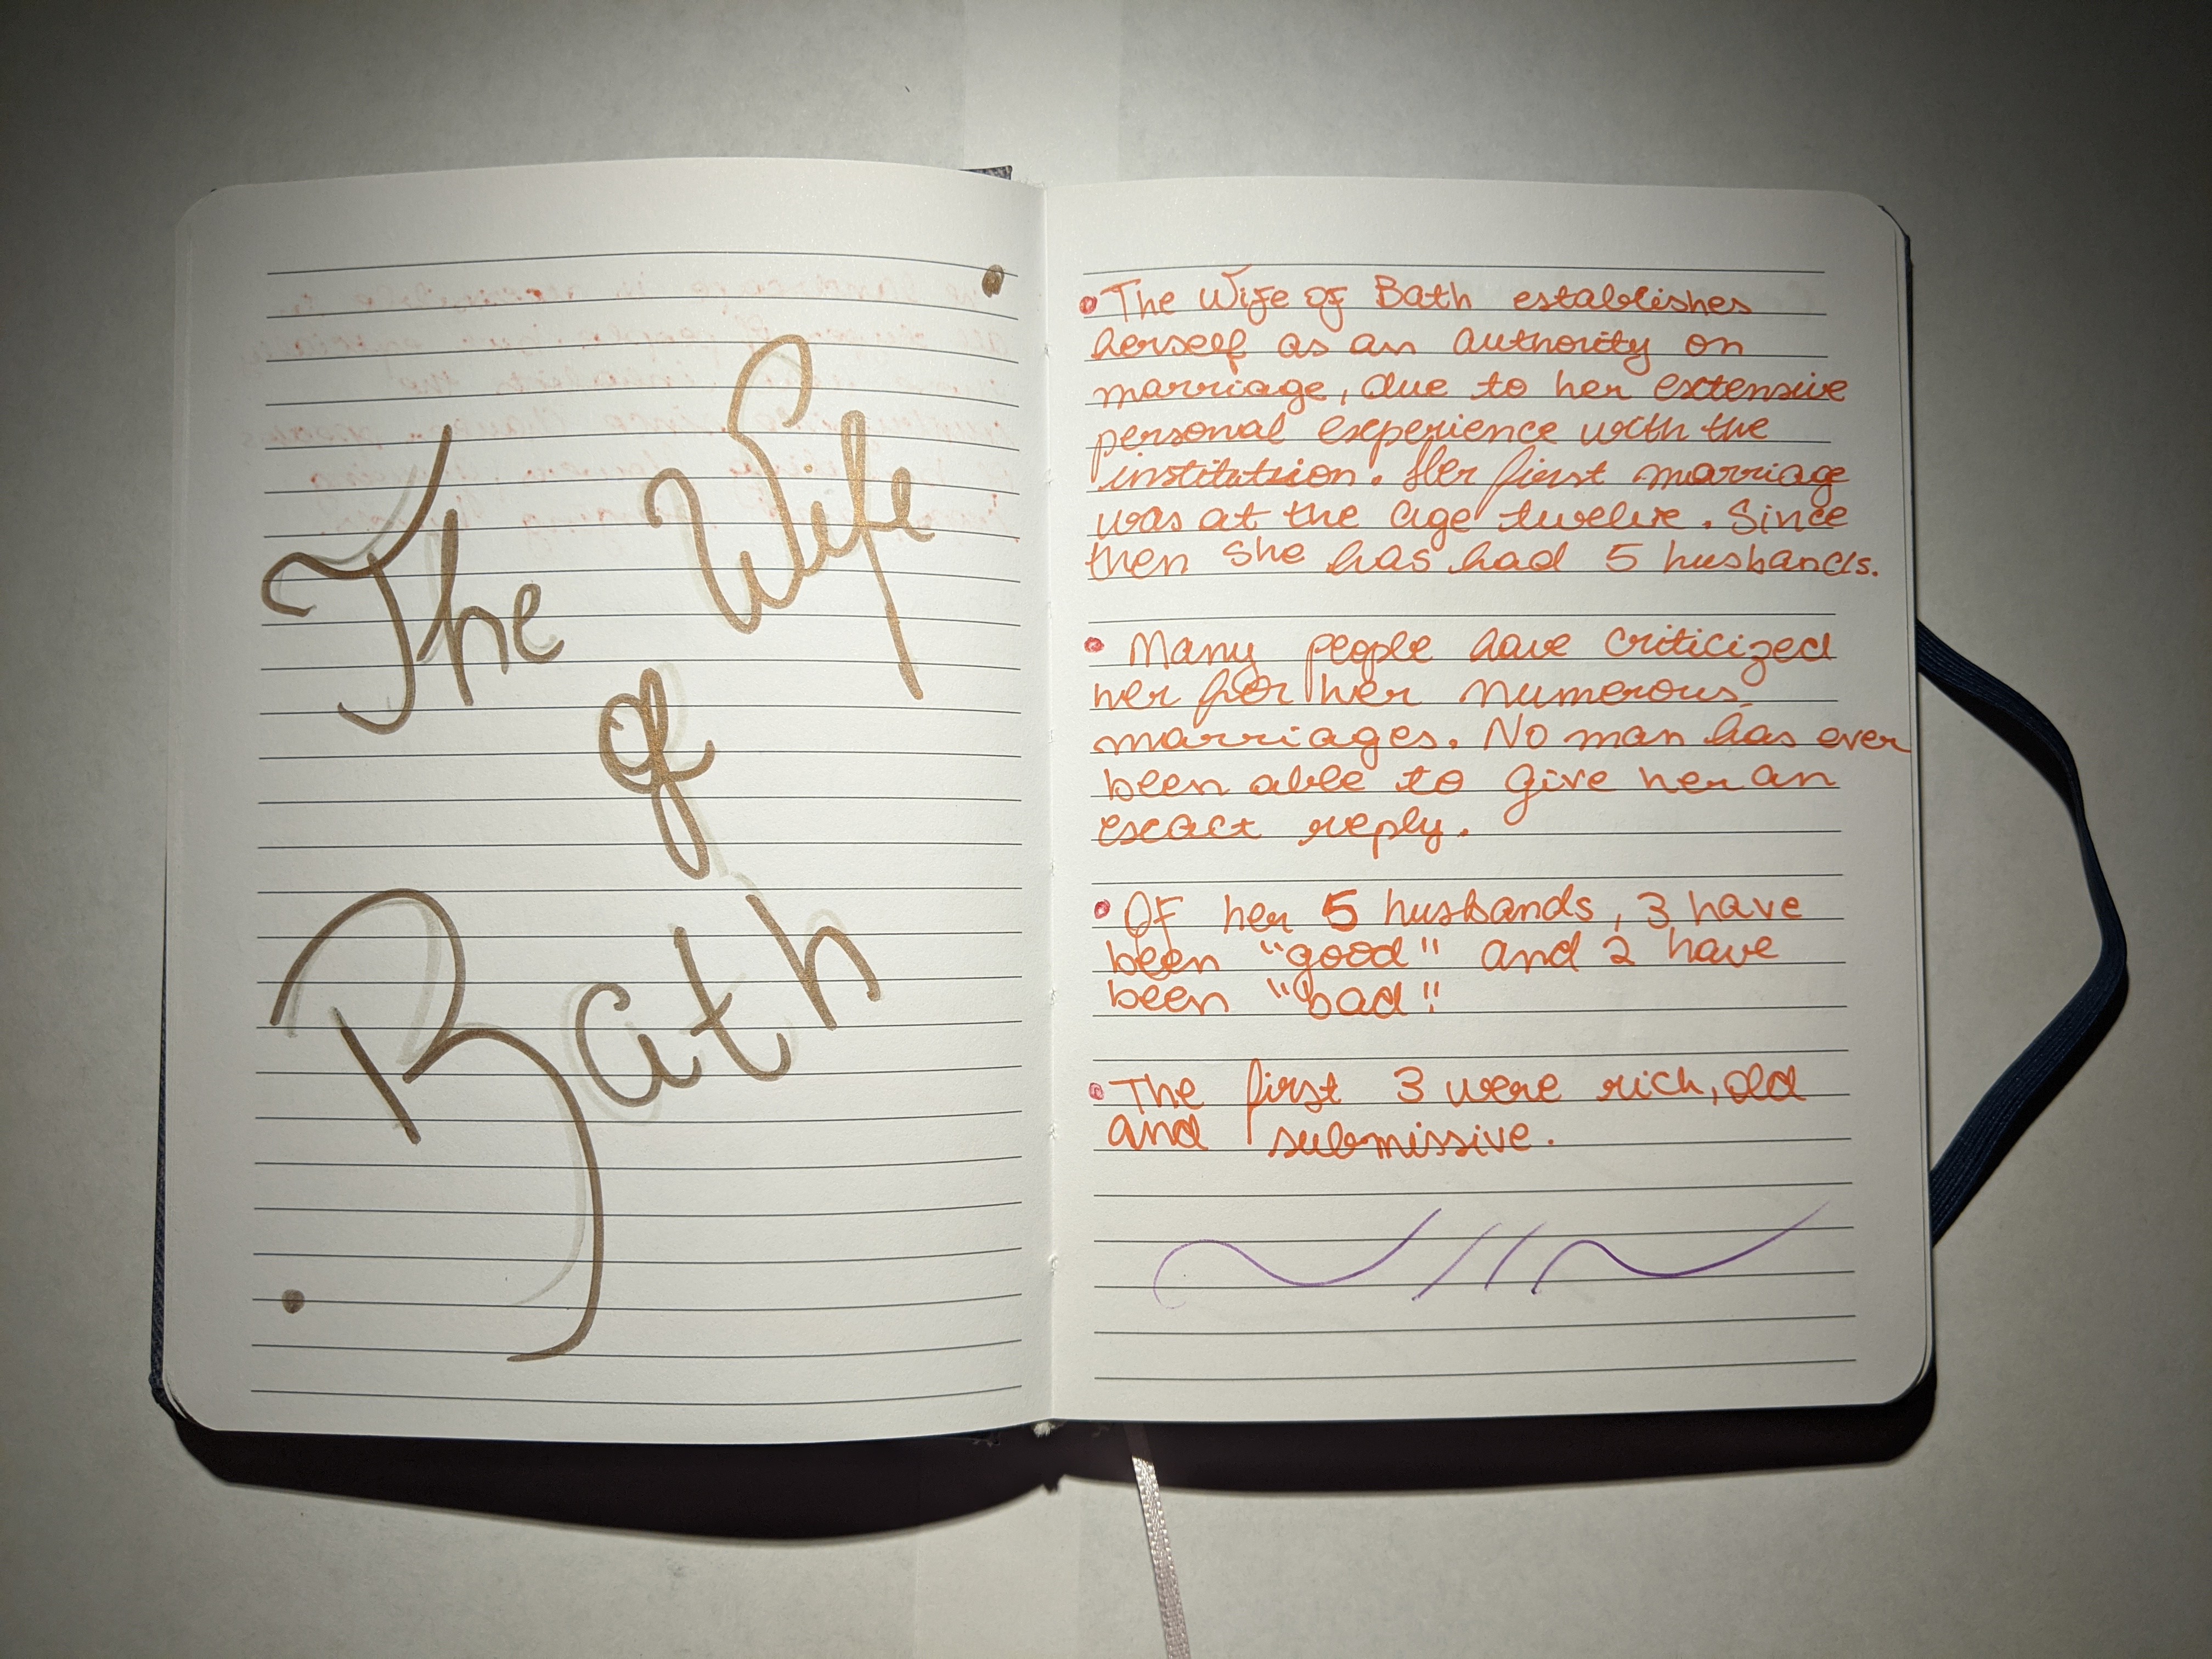 The Wife
of
Bath
• The Wife of Bath establishes
herself as an authority on
marriage, due to her extensive
personal experience with the
institution. Her first marriage
was at the age twelve. Since
then she has had 5 husbands.
• Many people have criticized
her for her numerous
marriages. No man has ever
been able to give her an
exact reply.
• Of her 5 husbands, 3 have
been "good" and 2 have
been "bad".
• The first 3 were rich, old
and submissive.